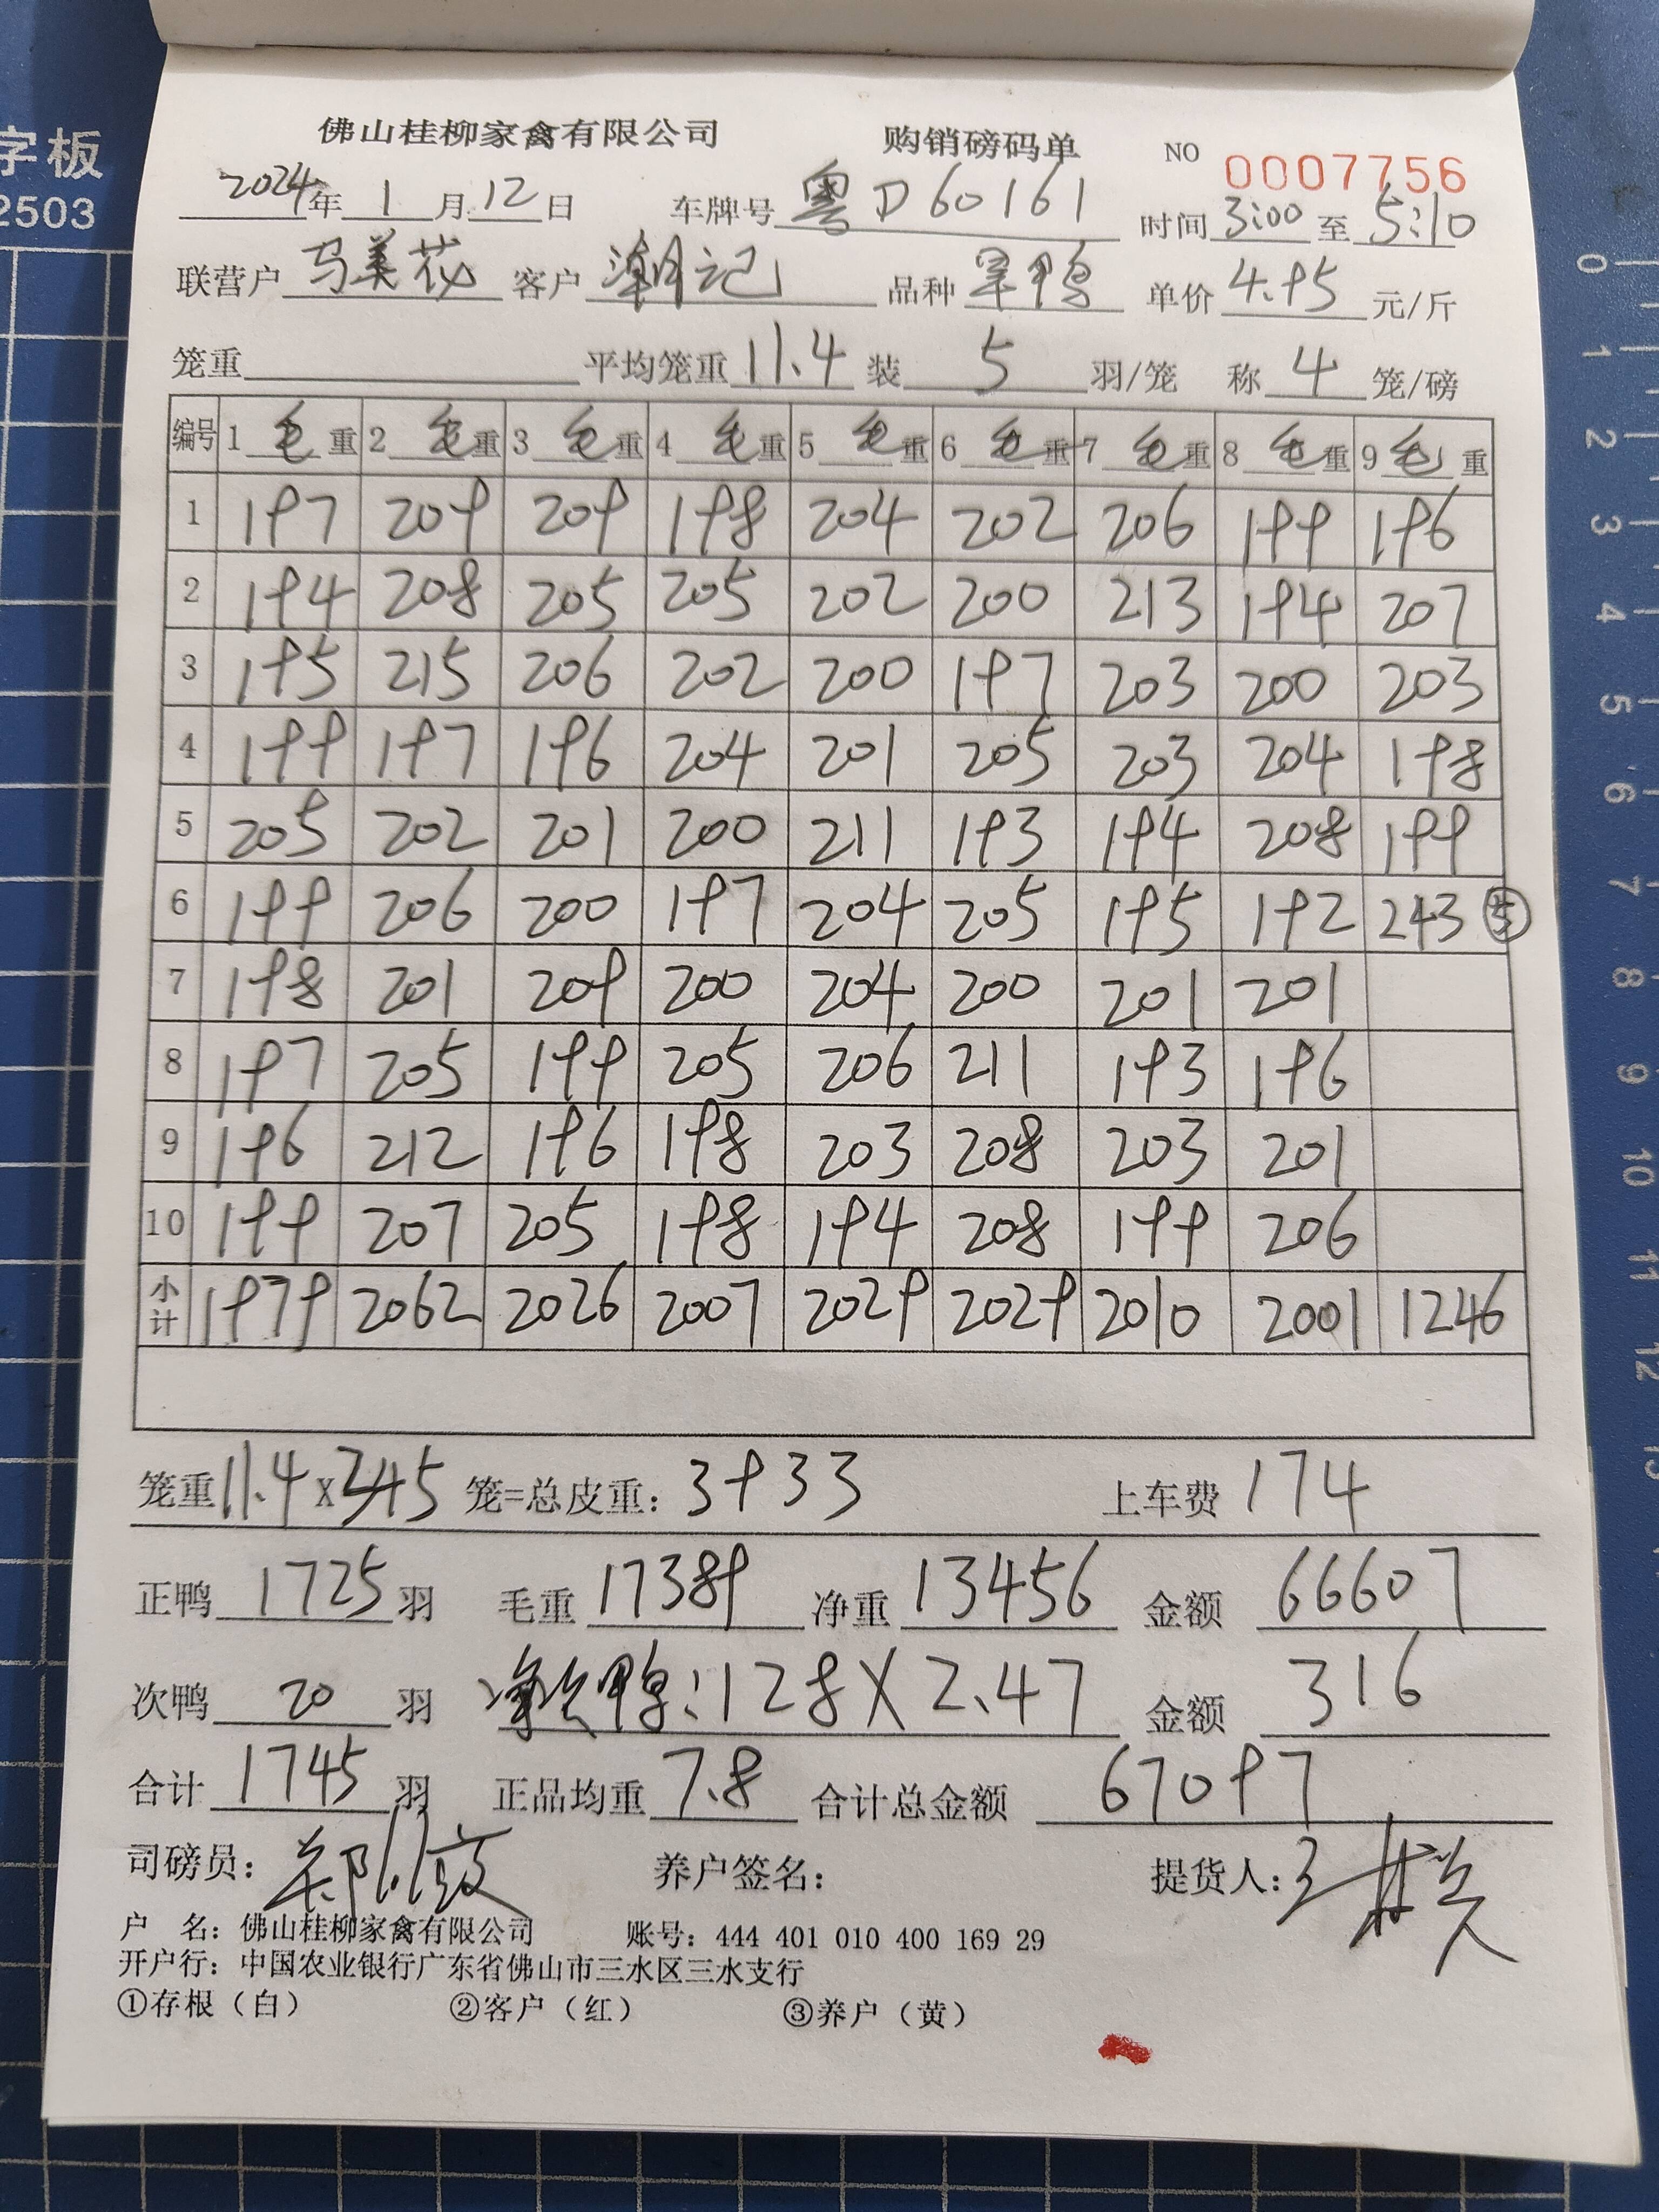 字板
2503
佛山桂柳家禽有限公司 购销磅码单 NO 0007756
2024年 1 月 12 日 车牌号 粤D60161 时间 3:00 至 5:10
联营户 马美花 客户 潮记 品种 旱鸭 单价 4.95 元/斤
笼重 平均笼重 11.4 装 5 羽/笼 称 4 笼/磅
编号 1 毛 重 2 毛 重 3 毛 重 4 毛 重 5 毛 重 6 毛 重 7 毛 重 8 毛 重 9 毛 重
1 197 209 209 198 204 202 206 199 196
2 194 208 205 205 202 200 213 194 207
3 195 215 206 202 200 197 203 200 203
4 199 197 196 204 201 205 203 204 198
5 205 202 201 200 211 193 194 208 199
6 199 206 200 197 204 205 195 192 243 ⑤
7 198 201 209 200 204 200 201 201
8 197 205 199 205 206 211 193 196
9 196 212 196 198 203 208 203 201
10 199 207 205 198 194 208 199 206
小计 1979 2062 2026 2007 2029 2029 2010 2001 1246
笼重 11.4 X 345 笼=总皮重: 3933 上车费 174
正鸭 1725 羽 毛重 17389 净重 13456 金额 66607
次鸭 20 羽 净次鸭:128X2.47 金额 316
合计 1745 羽 正品均重 7.8 合计总金额 67097
司磅员: 养户签名: 提货人:
户 名: 佛山桂柳家禽有限公司 账号: 444 401 010 400 169 29
开户行: 中国农业银行广东省佛山市三水区三水支行
①存根（白） ②客户（红） ③养户（黄）
0
1
2
3
4
5
6
7
8
9
10
11
12
13